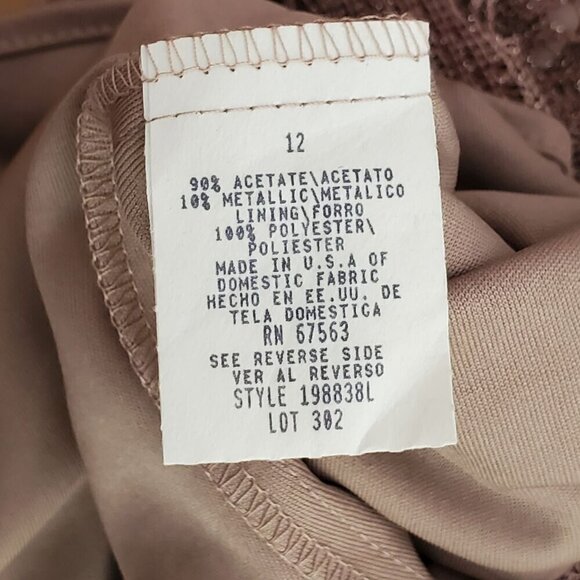 12
90% ACETATE\ACETATO
10% METALLIC\METALICO
LINING\FORRO
100% POLYESTER\
POLIESTER
MADE IN U.S.A OF
DOMESTIC FABRIC
HECHO EN EE.UU. DE
TELA DOMESTICA
RN 67563
SEE REVERSE SIDE
VER AL REVERSO
STYLE 198838L
LOT 302